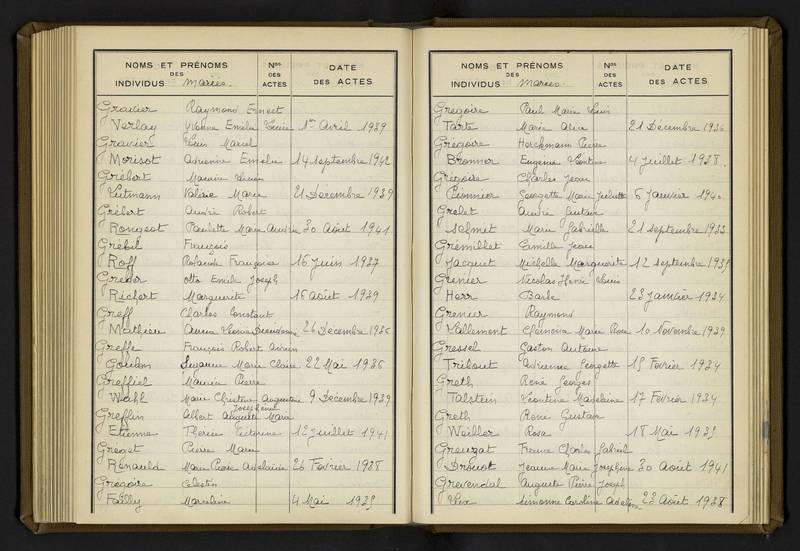 NOMS ET PRÉNOMS Nos DATE
DES DES
INDIVIDUS Mariés ACTES DES ACTES
Gravier Raymond Ernest
Verlay Yvonne Emélie Lucie 1er Avril 1939
Gravier Louis Marcel
Morisot Adrienne Emélie 14 septembre 1942
Grébert Maurice Lucien
Lutmann Valérie Marie 21 Décembre 1939
Grébert André Robert
Rongeot Paulette Marie Andrée 30 Août 1941
Grébil François
Roff Rolande Françoise 16 Juin 1937
Greder Otto Emile Joseph
Richert Marguerite 16 août 1939
Greff Charles Constant
Mathieu 26 Décembre 1936
Greffe François Robert Adrien
Goudon Suzanne Marie Claire 22 Mai 1936
Greffiel Maurice Pierre
Wahl Marie Christine Augustine 9 Décembre 1939
Joséphine
Greffin Albert Auguste Marie
Etienne Thérèse Victorine 12 Juillet 1941
Gregot Pierre Marie
Renauld Marie Pierre Adélaïde 26 Février 1938
Grégoire Célestin
Failly Marceline 4 Mai 1935
NOMS ET PRÉNOMS Nos DATE
DES DES
INDIVIDUS Mariés ACTES DES ACTES
Grégoire Paul Marie Louis
Tarte Marie Alice 21 Décembre 1936
Grégoire Pierre
Bronner Eugénie Léontine 4 Juillet 1938
Grégoire Charles Jean
Pionnier Georgette Marie Juliette 6 Janvier 1940
Grelet André Gustave
Marie Gabrielle 21 septembre 1933
Grémillet Camille Jean
Jacquet Michelle Marguerite 12 septembre 1935
Grenier Nicolas Henri Louis
Herr Barbe 23 Janvier 1934
Grenier Raymond
Lallement Marie Rose 10 Novembre 1939
Gressel Gaston Antoine
Tribout Adrienne Georgette 15 Février 1934
Greth René Georges
Talstein Léontine Madeleine 17 Février 1934
Greth René Gustave
Weiller Rosa 18 Mai 1935
Greuzat France Charles Gabriel
Drouot Jeanne Marie Joséphine 30 Août 1941
Grevendal Auguste Pierre Joseph
Simonne Caroline Adeline 23 Août 1938